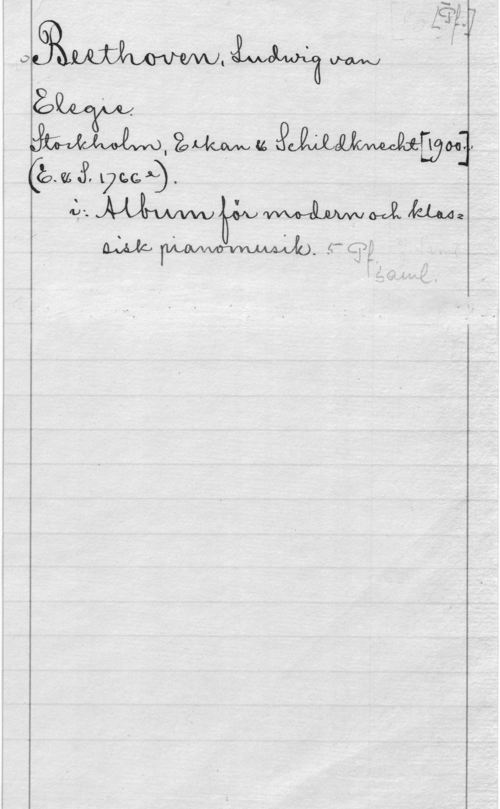 [Pf.]
Beethoven, Ludwig van
Elegie.
Stockholm, Elkan & Schildknecht [1900.]
(E. & S. 1766 a).
i: Album för modern och klas=
sisk pianomusik. 5 Pf
saml.